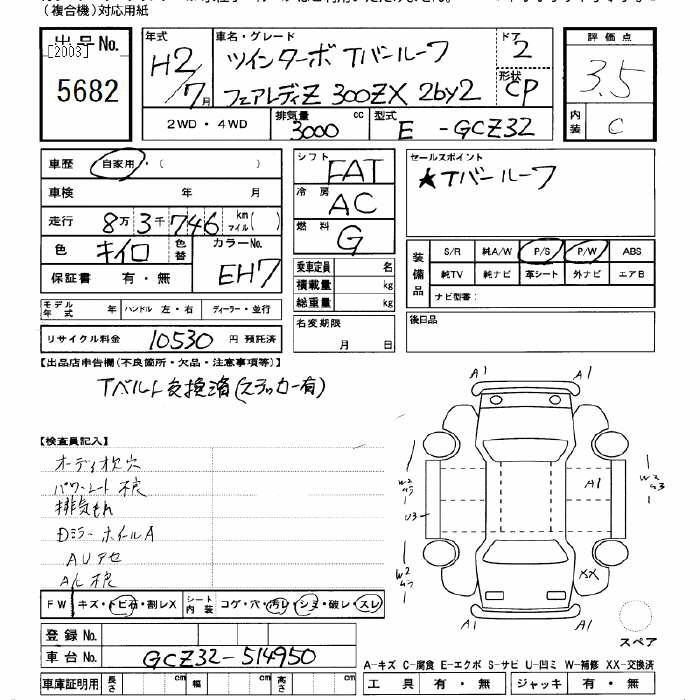 （複合機）対応用紙
出品No. [2003] 5682
年式 H2/7月
車名・グレード ツインターボ Tバールーフ
フェアレディZ 300ZX 2by2
ドア 2
形状 CP
評価点 3.5
内装 C
2WD・4WD 排気量 3000 cc 型式 E -GCZ32
車歴 自家用・（ ）
車検 年 月
走行 8万3千746 km マイル（ ）
色 キイロ 色替 カラーNo. EH7
保証書 有・無
モデル年式 年 ハンドル 左・右 ディーラー・並行
リサイクル料金 10530 円 預託済
シフト FAT
冷房 AC
燃料 G
乗車定員 名
積載量 kg
総重量 kg
名変期限 月 日
セールスポイント
★Tバールーフ
装備品 S/R 純A/W P/S P/W ABS
純TV 純ナビ 革シート 外ナビ エアB
ナビ型番：
後日品
【出品店申告欄（不良箇所・欠品・注意事項等）】
Tベルト交換済（ステッカー有）
【検査員記入】
オーディオ欠穴
パワーシート不良
排気もれ
Dミラー ホイルA
AUアセ
A/C 不良
FW キズ・トビ石・割レX シート内装 コゲ・穴・汚レ・シミ・破レ・スレ
登録No.
車台No. GCZ32-514950
車庫証明用 長さ cm 幅 cm 高さ cm
A1 A1
W2
A1
W2
U3
W2
XX
A1 A1
スペア
A-キズ C-腐食 E-エクボ S-サビ U-凹ミ W-補修 XX-交換済
工具 有・無 ジャッキ 有・無